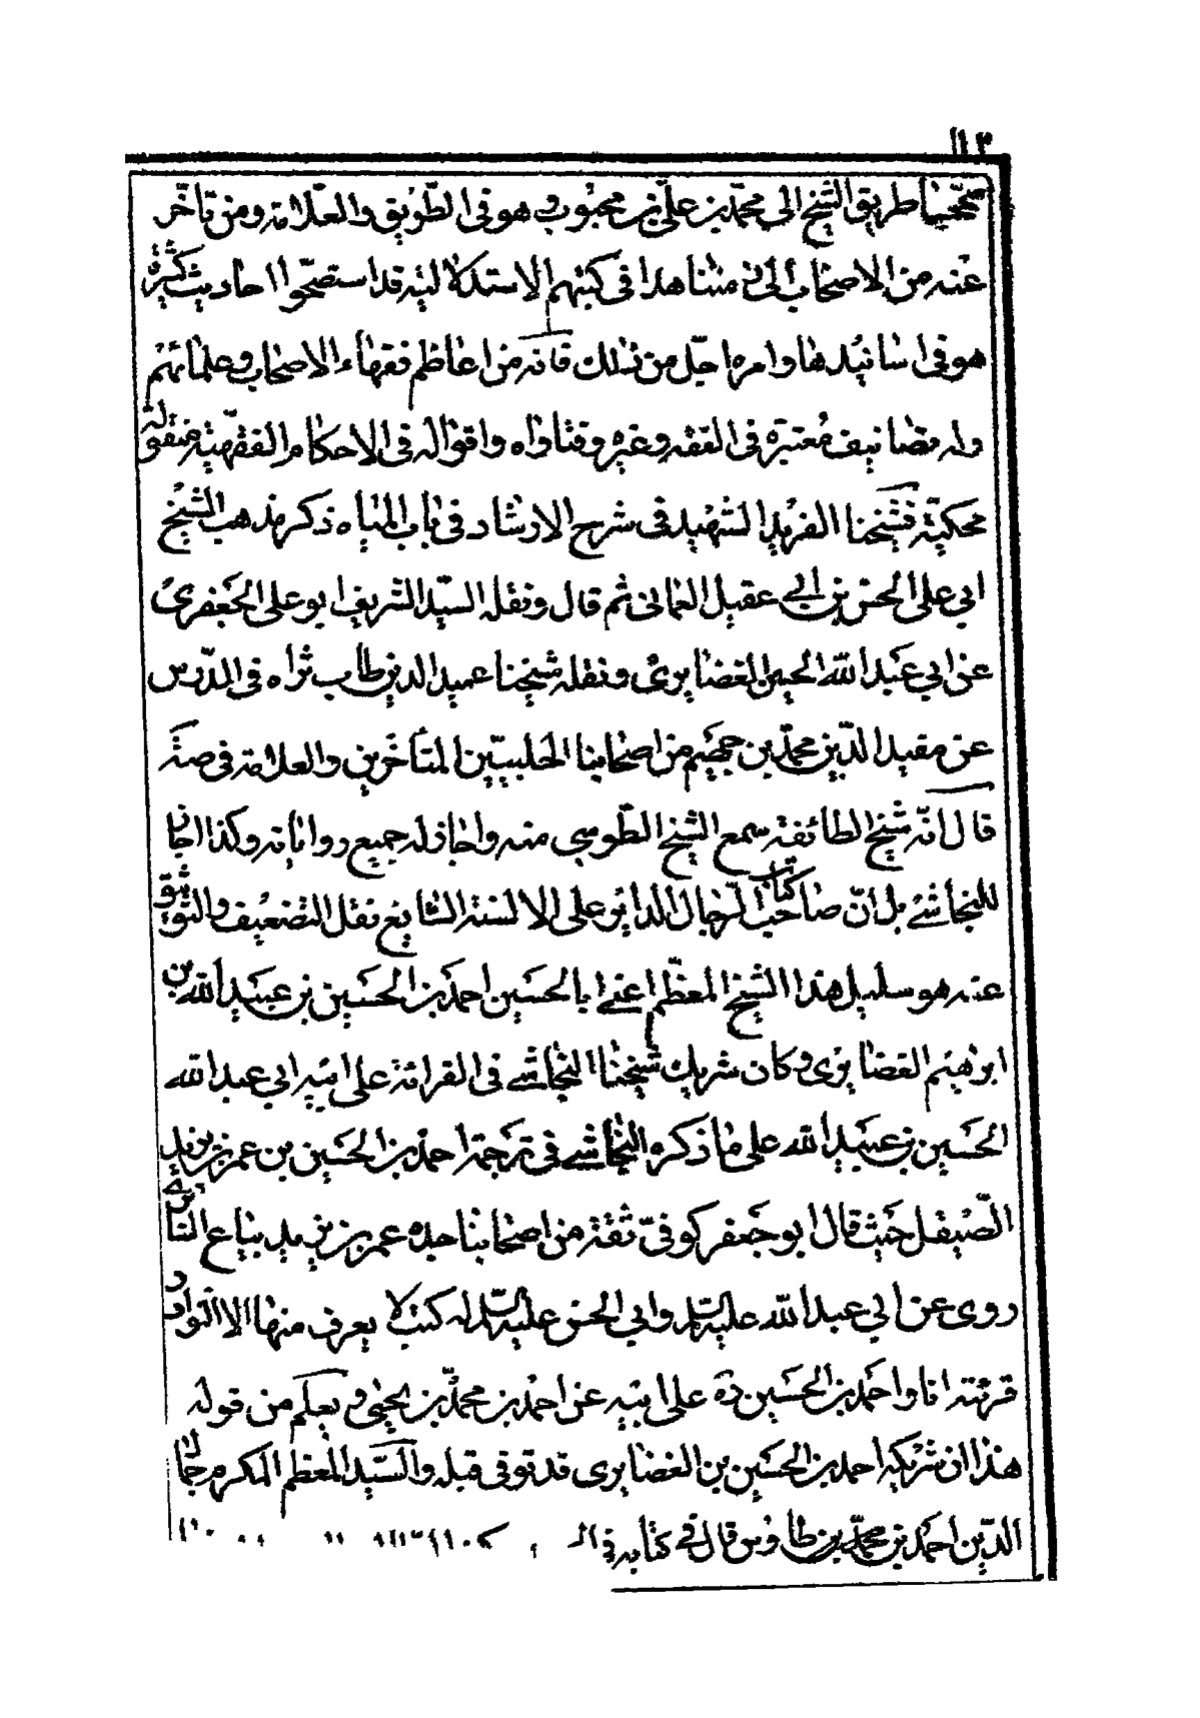 ١١٣
صحيحيا طريق الشيخ الى محمد بن على بن محبوب وهو فى الطريق والعلامة ومن تأخر
عنه من الاصحاب الى زمننا هذا فى كتبهم الاستدلالية قد استصحوا احاديث كثيرة
هو فى اسانيدها وامره اجل من ذلك فانه من اعاظم فقهاء الاصحاب وعلمائهم
وله تصانيف معتبرة فى الفقه وغيره وفتاواه واقواله فى الاحكام الفقهية منقولة
محكية فشيخنا الفريد الشهيد فى شرح الارشاد فى باب المياه ذكر مذهب الشيخ
ابي على الحسن بن ابي عقيل العمانى ثم قال ونقله السيد الشريف ابو على الجعفرى
عن ابي عبد الله الحسين الغضايرى ونقله شيخنا عميد الدين طاب ثراه فى الدرس
عن مفيد الدين محمد بن جهيم من اصحابنا الحلبيين المتأخرين والعلامة فى صة
قال انه شيخ الطائفة سمع الشيخ الطوسي منه واجاز له جميع رواياته وكذا اجاز
للنجاشي بل ان صاحب كتاب الرجال الدائر على الالسنة الشايع نقل التضعيف والتوثيق
عنه هو سليل هذا الشيخ المعظم اعني ابا الحسين احمد بن الحسين بن عبيد الله بن
ابرهيم الغضايرى وكان شريك شيخنا النجاشي فى القرائة على ابيه ابي عبد الله
الحسين بن عبيد الله على ما ذكره النجاشي فى ترجمة احمد بن الحسين بن عمر بن يزيد
الصيقل حيث قال ابو جعفر كوفى ثقة من اصحابنا جده عمر بن يزيد بياع السابرى
روى عن ابي عبد الله عليه السلم وابي الحسن عليه السلم له كتب لا يعرف منها الا النوادر
قرئته انا واحمد بن الحسين ره على ابيه عن احمد بن محمد بن يحيى ويعلم من قوله
هذا ان شريكه احمد بن الحسين بن الغضايرى قد توفى قبله والسيد المعظم المكرم جمال
الدين احمد بن محمد بن طاوس قال فى كتابه فى